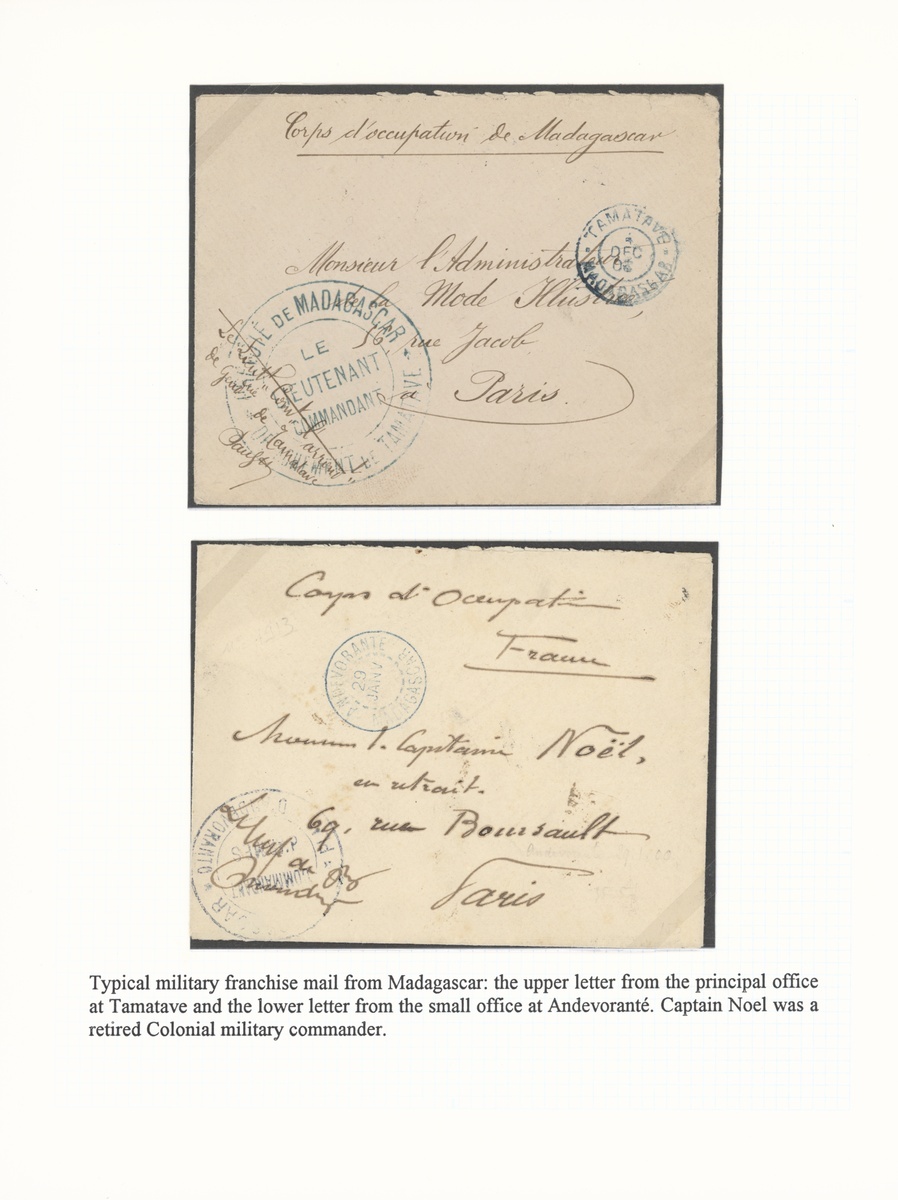 Corps d'occupation de Madagascar
TAMATAVE
DEC
MADAGASCAR
Monsieur l'Administrateur
de la Mode Illustrée,
56, rue Jacob
à Paris.
DE MADAGASCAR
LE
LIEUTENANT
COMMANDANT
DE TAMATAVE
Corps d'Occupation
France
ANDEVORANTE
29
JANV
MADAGASCAR
Monsieur le Capitaine Noël,
en retrait.
69, rue Boursault
Paris
Typical military franchise mail from Madagascar: the upper letter from the principal office
at Tamatave and the lower letter from the small office at Andevoranté. Captain Noel was a
retired Colonial military commander.